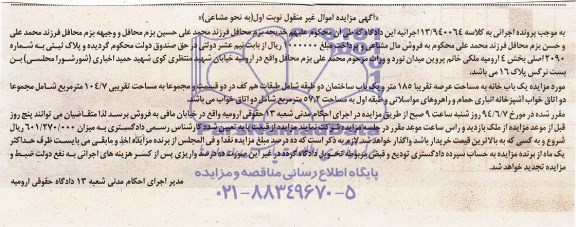 «آگهی مزایده اموال غیر منقول نوبت اول(به نحو مشاعی)»
به موجب پرونده اجرائی به کلاسه ۱۳/۹۴۰۰۶۴ اجرائیه این دادگاه که در آن محکوم علیهم خدیجه بزم محافل فرزند محمد علی حسین بزم محافل و وجیهه بزم محافل فرزند محمد علی
و حسن بزم محافل فرزند محمد علی محکوم به فروش مال مشاعی و پرداخت مبلغ ۱۰۰۰۰۰۰ ریال از بابت نیم عشر دولتی در حق صندوق دولت محکوم گردیده و پلاک ثبتی به شماره
۲۰۹۰ اصلی بخش ۴ ارومیه ملکی خانم پروین میدان نورد و وراث مرحوم محمد علی بزم محافل واقع در ارومیه خیابان شهید منتظری کوی شهید حمید اخباری (شورشورا مجلسی) بن
بست نرگس پلاک ۱۶ می باشد.
مورد مزایده یک باب خانه به مساحت عرصه تقریبی ۱۸۵ متر و یک باب ساختمان دو طبقه شامل طبقات هم کف در دو قسمت و مجموعا به مساحت تقریبی ۱۰۴/۷ مترمربع شامل مجموعا
دو اتاق خواب آشپزخانه انباری حمام و راهروهای مواسلاتی طبقه اول به مساحت ۵۷/۲ مترمربع شامل دو اتاق خواب می باشد.
مقرر شده در مورخ ۹۴/۶/۷ روز شنبه ساعت ۹ صبح از طریق مزایده در اجرای احکام مدنی شعبه ۱۳ حقوقی ارومیه واقع در خیابان مافی به فروش برسد لذا متقاضیان می توانند پنج روز
قبل از موعد مزایده از ملک بازدید و راس ساعت موعد مقرر در جلسه مزایده شرکت نمایند مزایده از قیمت پایه تعیین شده کارشناس رسمی دادگستری به میزان ۶۰۱/۲۷۰/۰۰۰ ریال
شروع و به کسی که به بالاترین قیمت خریدار باشد واگذار خواهد شد لازم به ذکر است که ده درصد مبلغ مزایده نقدا و فی المجلس از برنده مزایده اخذ و مابقی می بایست ظرف حداکثر
یک ماه از برنده مزایده به حساب سپرده دادگستری تودیع و قبض مربوطه تحویل دادگاه گردد در غیر این صورت ده درصد واریزی پس از کسر هزینه های اجرائی به نفع دولت ضبط و
مزایده تجدید خواهد شد.
مدیر اجرای احکام مدنی شعبه ۱۳ دادگاه حقوقی ارومیه
پایگاه اطلاع رسانی مناقصه و مزایده
۰۲۱-۸۸۳۴۹۶۷۰-۵